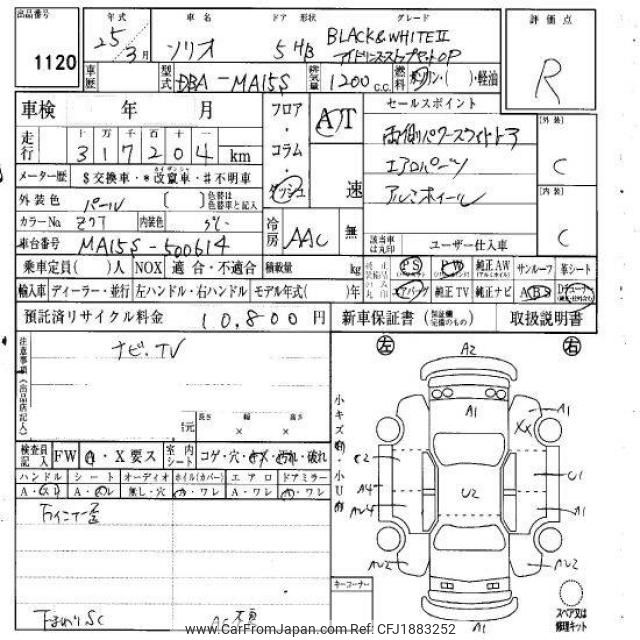 出品番号 年式 車名 ドア 形状 グレード 評価点
1120 25年3月 ソリオ 5 HB BLACK&WHITE II R
アイドリングストップキャットOP
車歴 型式 DBA-MA15S 排気量 1200 c.c. 燃料 ガソリン・( )・軽油
車検 年 月 フロア・コラム・ダッシュ AT 速 セールスポイント
両側パワースライドドア [外装] C
エアロパーツ
アルミホイール [内装] C
走行 十 万 千 百 十 一
3 1 7 2 0 4 km
メーター歴 $交換車・*改竄車・#不明車
外装色 パール [ ] 色替は色替車と記入
カラーNo. Z7T 内装色 グレー 冷房 AAC 無
車台番号 MA15S-500614 該当車は丸印 ユーザー仕入車
乗車定員( )人 NOX 適合・不適合 積載量 kg PS PW 純正AW サンルーフ 革シート
輸入車 ディーラー・並行 左ハンドル・右ハンドル モデル年式( )年 エアバッグ 純正TV 純正ナビ ABS
預託済リサイクル料金 10,800 円 新車保証書 (保証欄完備のもの) 取扱説明書
注意事項(出品店記入) ナビ・TV
左 右
長さ 幅 高さ
× ×
検査員記入 FW A・X要ス 室内シート コゲ・穴・キズ・汚れ・破れ
ハンドル シート オーディオ ホイル(カバー) エアロ ドアミラー
無し・穴 ・ワレ A・ワレ ・ワレ
小キズ有・小U有
A2
A1 A1
XX
C2 U1
A4 U2
A1
AU2 AU2
A1
下まわりSC AC不良
キーコーナー
スペア又は修理キット
www.CarFromJapan.com Ref: CFJ1883252